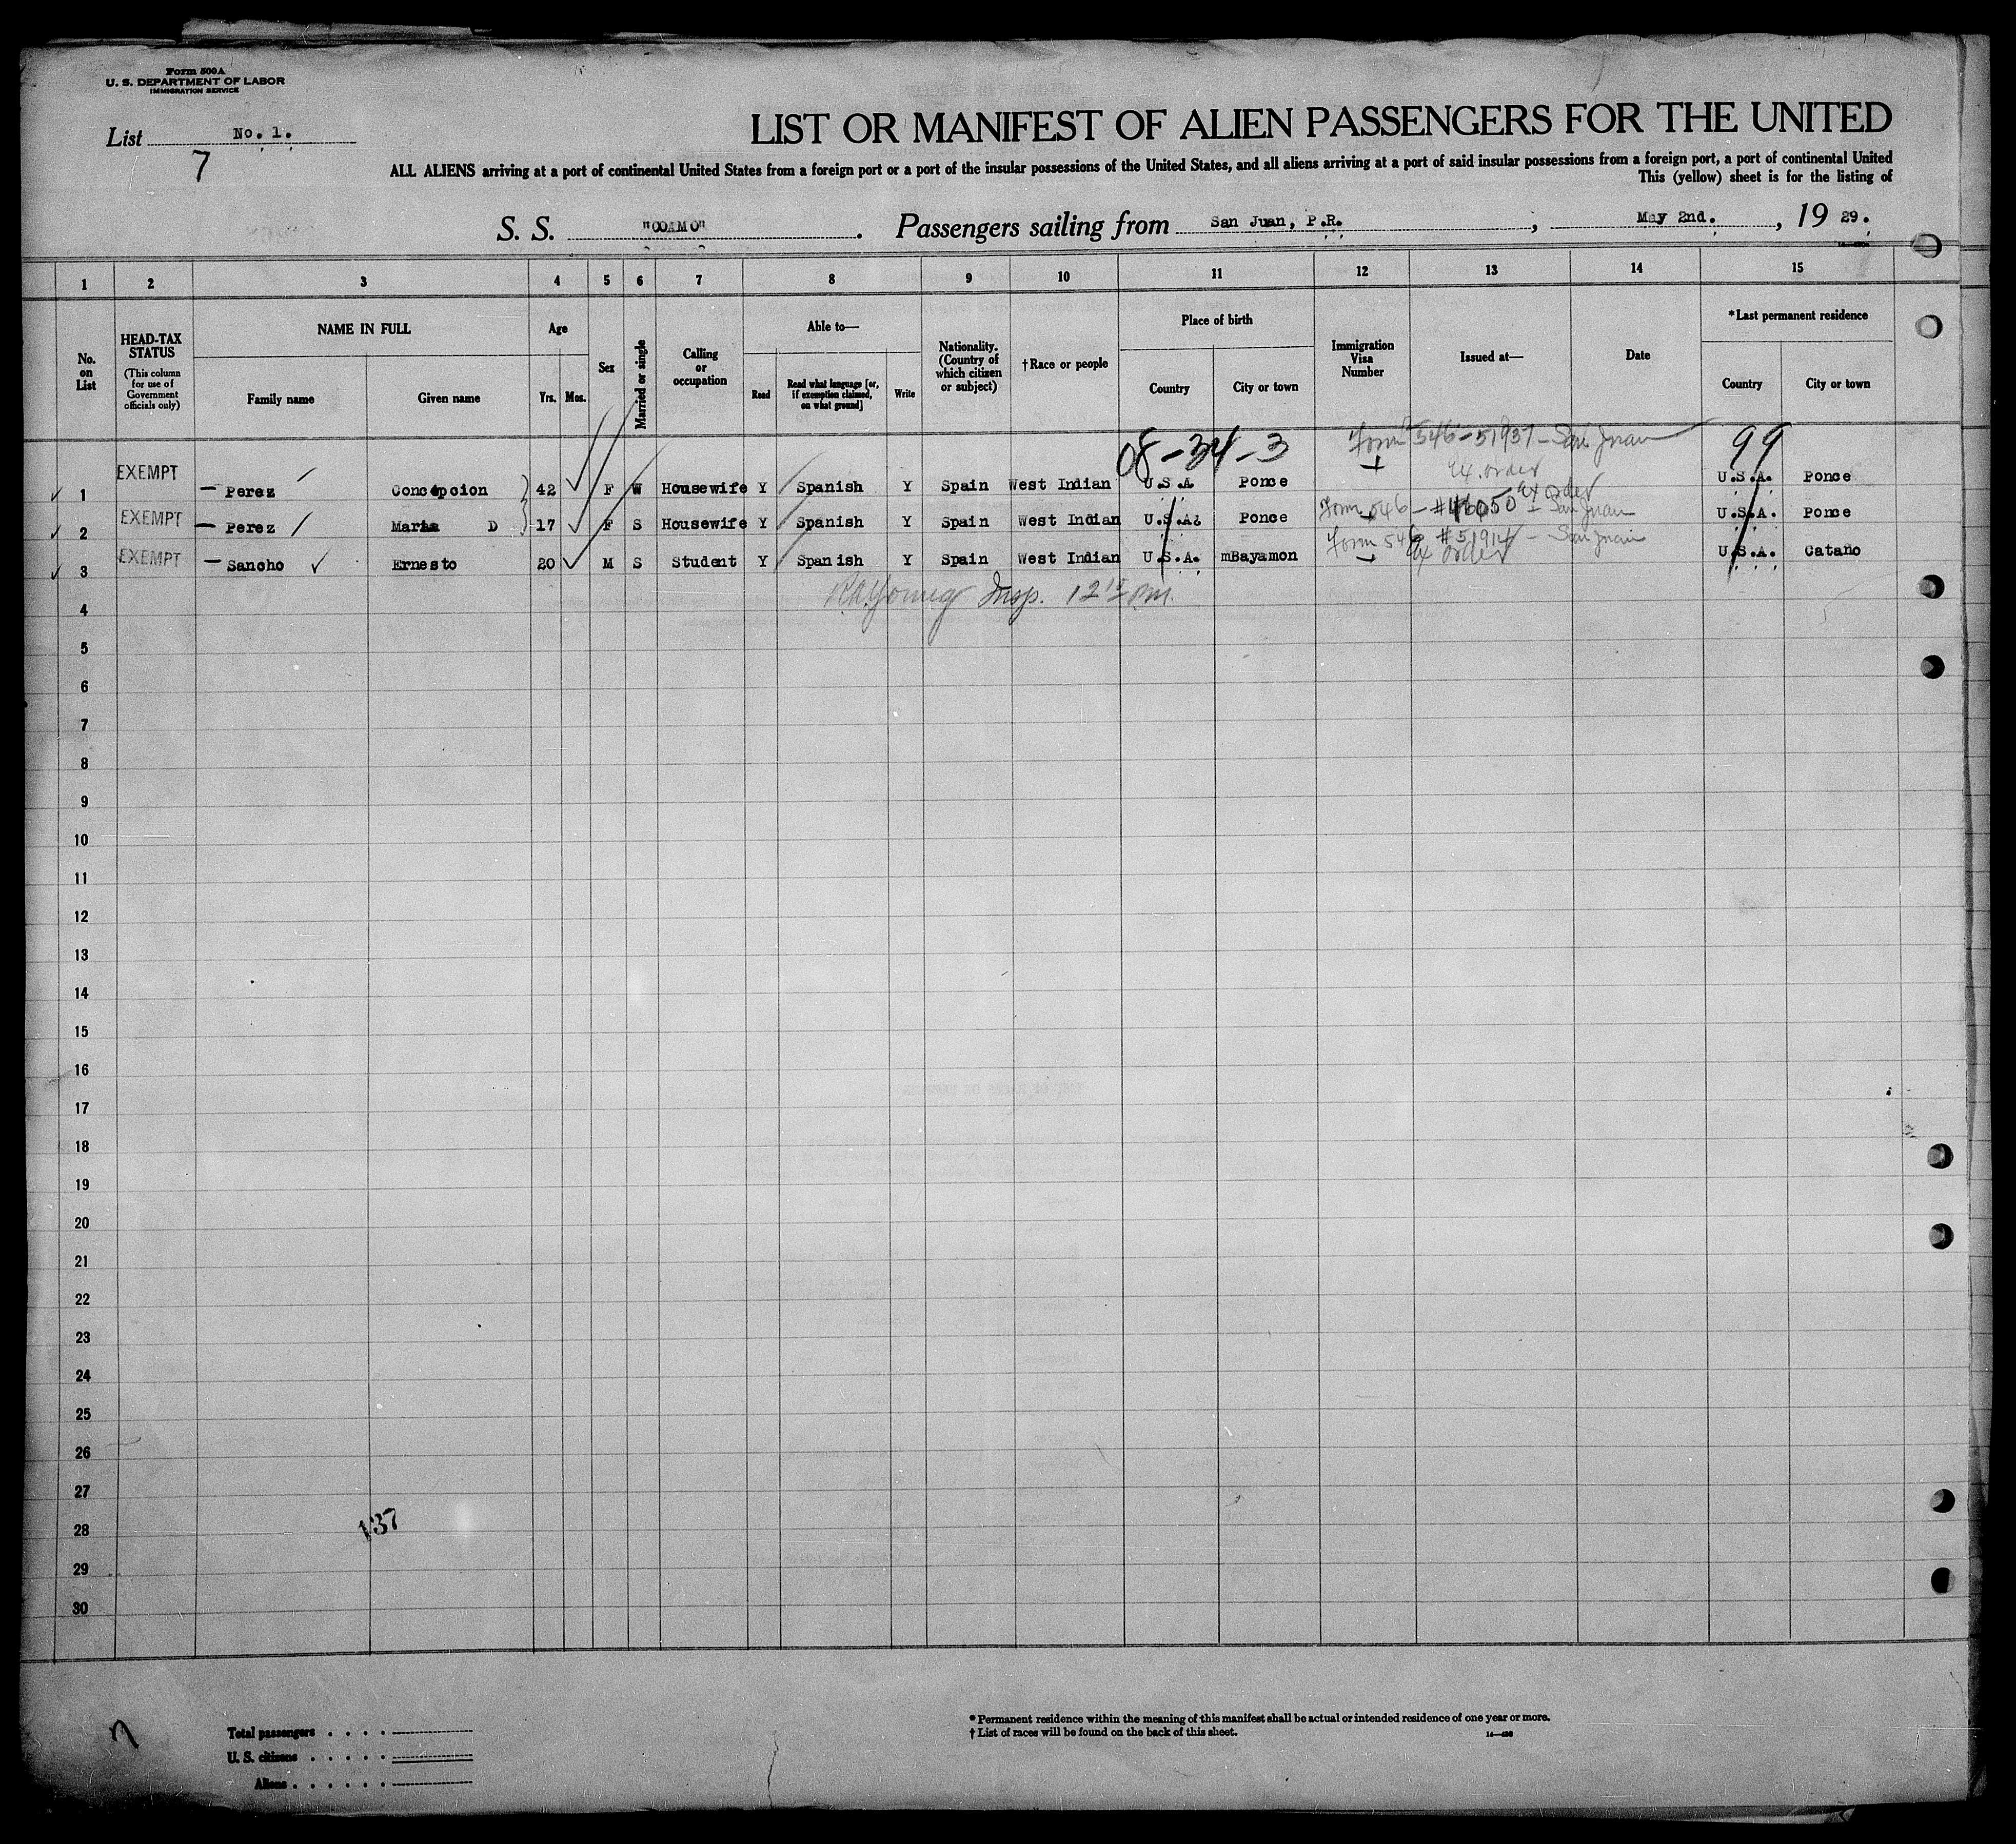 Form 500A
U. S. DEPARTMENT OF LABOR
IMMIGRATION SERVICE
List No. 1.
7
LIST OR MANIFEST OF ALIEN PASSENGERS FOR THE UNITED
ALL ALIENS arriving at a port of continental United States from a foreign port or a port of the insular possessions of the United States, and all aliens arriving at a port of said insular possessions from a foreign port, a port of continental United
This (yellow) sheet is for the listing of
S. S. "COAMO". Passengers sailing from San Juan, P.R., May 2nd., 19 29.
1 2 3 4 5 6 7 8 9 10 11 12 13 14 15
No. on List
HEAD-TAX STATUS
(This column for use of Government officials only)
NAME IN FULL
Family name Given name
Age
Yrs. Mos.
Sex
Married or single
Calling or occupation
Able to—
Read
Read what language [or, if exemption claimed, on what ground]
Write
Nationality. (Country of which citizen or subject)
†Race or people
Place of birth
Country City or town
Immigration Visa Number
Issued at—
Date
*Last permanent residence
Country City or town
08-34-3 Form 546-51937-San Juan 99
ex. order
EXEMPT
1 Perez Concepcion 42 F W Housewife Y Spanish Y Spain West Indian U.S.A Ponce U.S.A. Ponce
ex order
EXEMPT
2 Perez Maria D 17 F S Housewife Y Spanish Y Spain West Indian U.S.A. Ponce Form 546-#46050 San Juan U.S.A. Ponce
Form 546 #51914 - San Juan
EXEMPT
3 Sancho Ernesto 20 M S Student Y Spanish Y Spain West Indian U.S.A. mBayamon ex order U.S.A. Cataño
4 R.A. Young Insp. 12 15 pm.
5
6
7
8
9
10
11
12
13
14
15
16
17
18
19
20
21
22
23
24
25
26
27
28 137
29
30
Total passengers
U. S. citizens
Aliens
* Permanent residence within the meaning of this manifest shall be actual or intended residence of one year or more.
† List of races will be found on the back of this sheet.